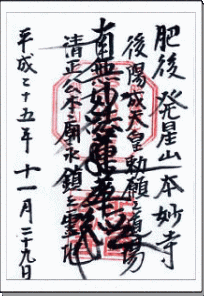 肥後 発星山本妙寺
後陽成天皇勅願之道場
南無妙法蓮華経
清正公本廟永鎮之霊地
平成二十五年 十一月二十九日